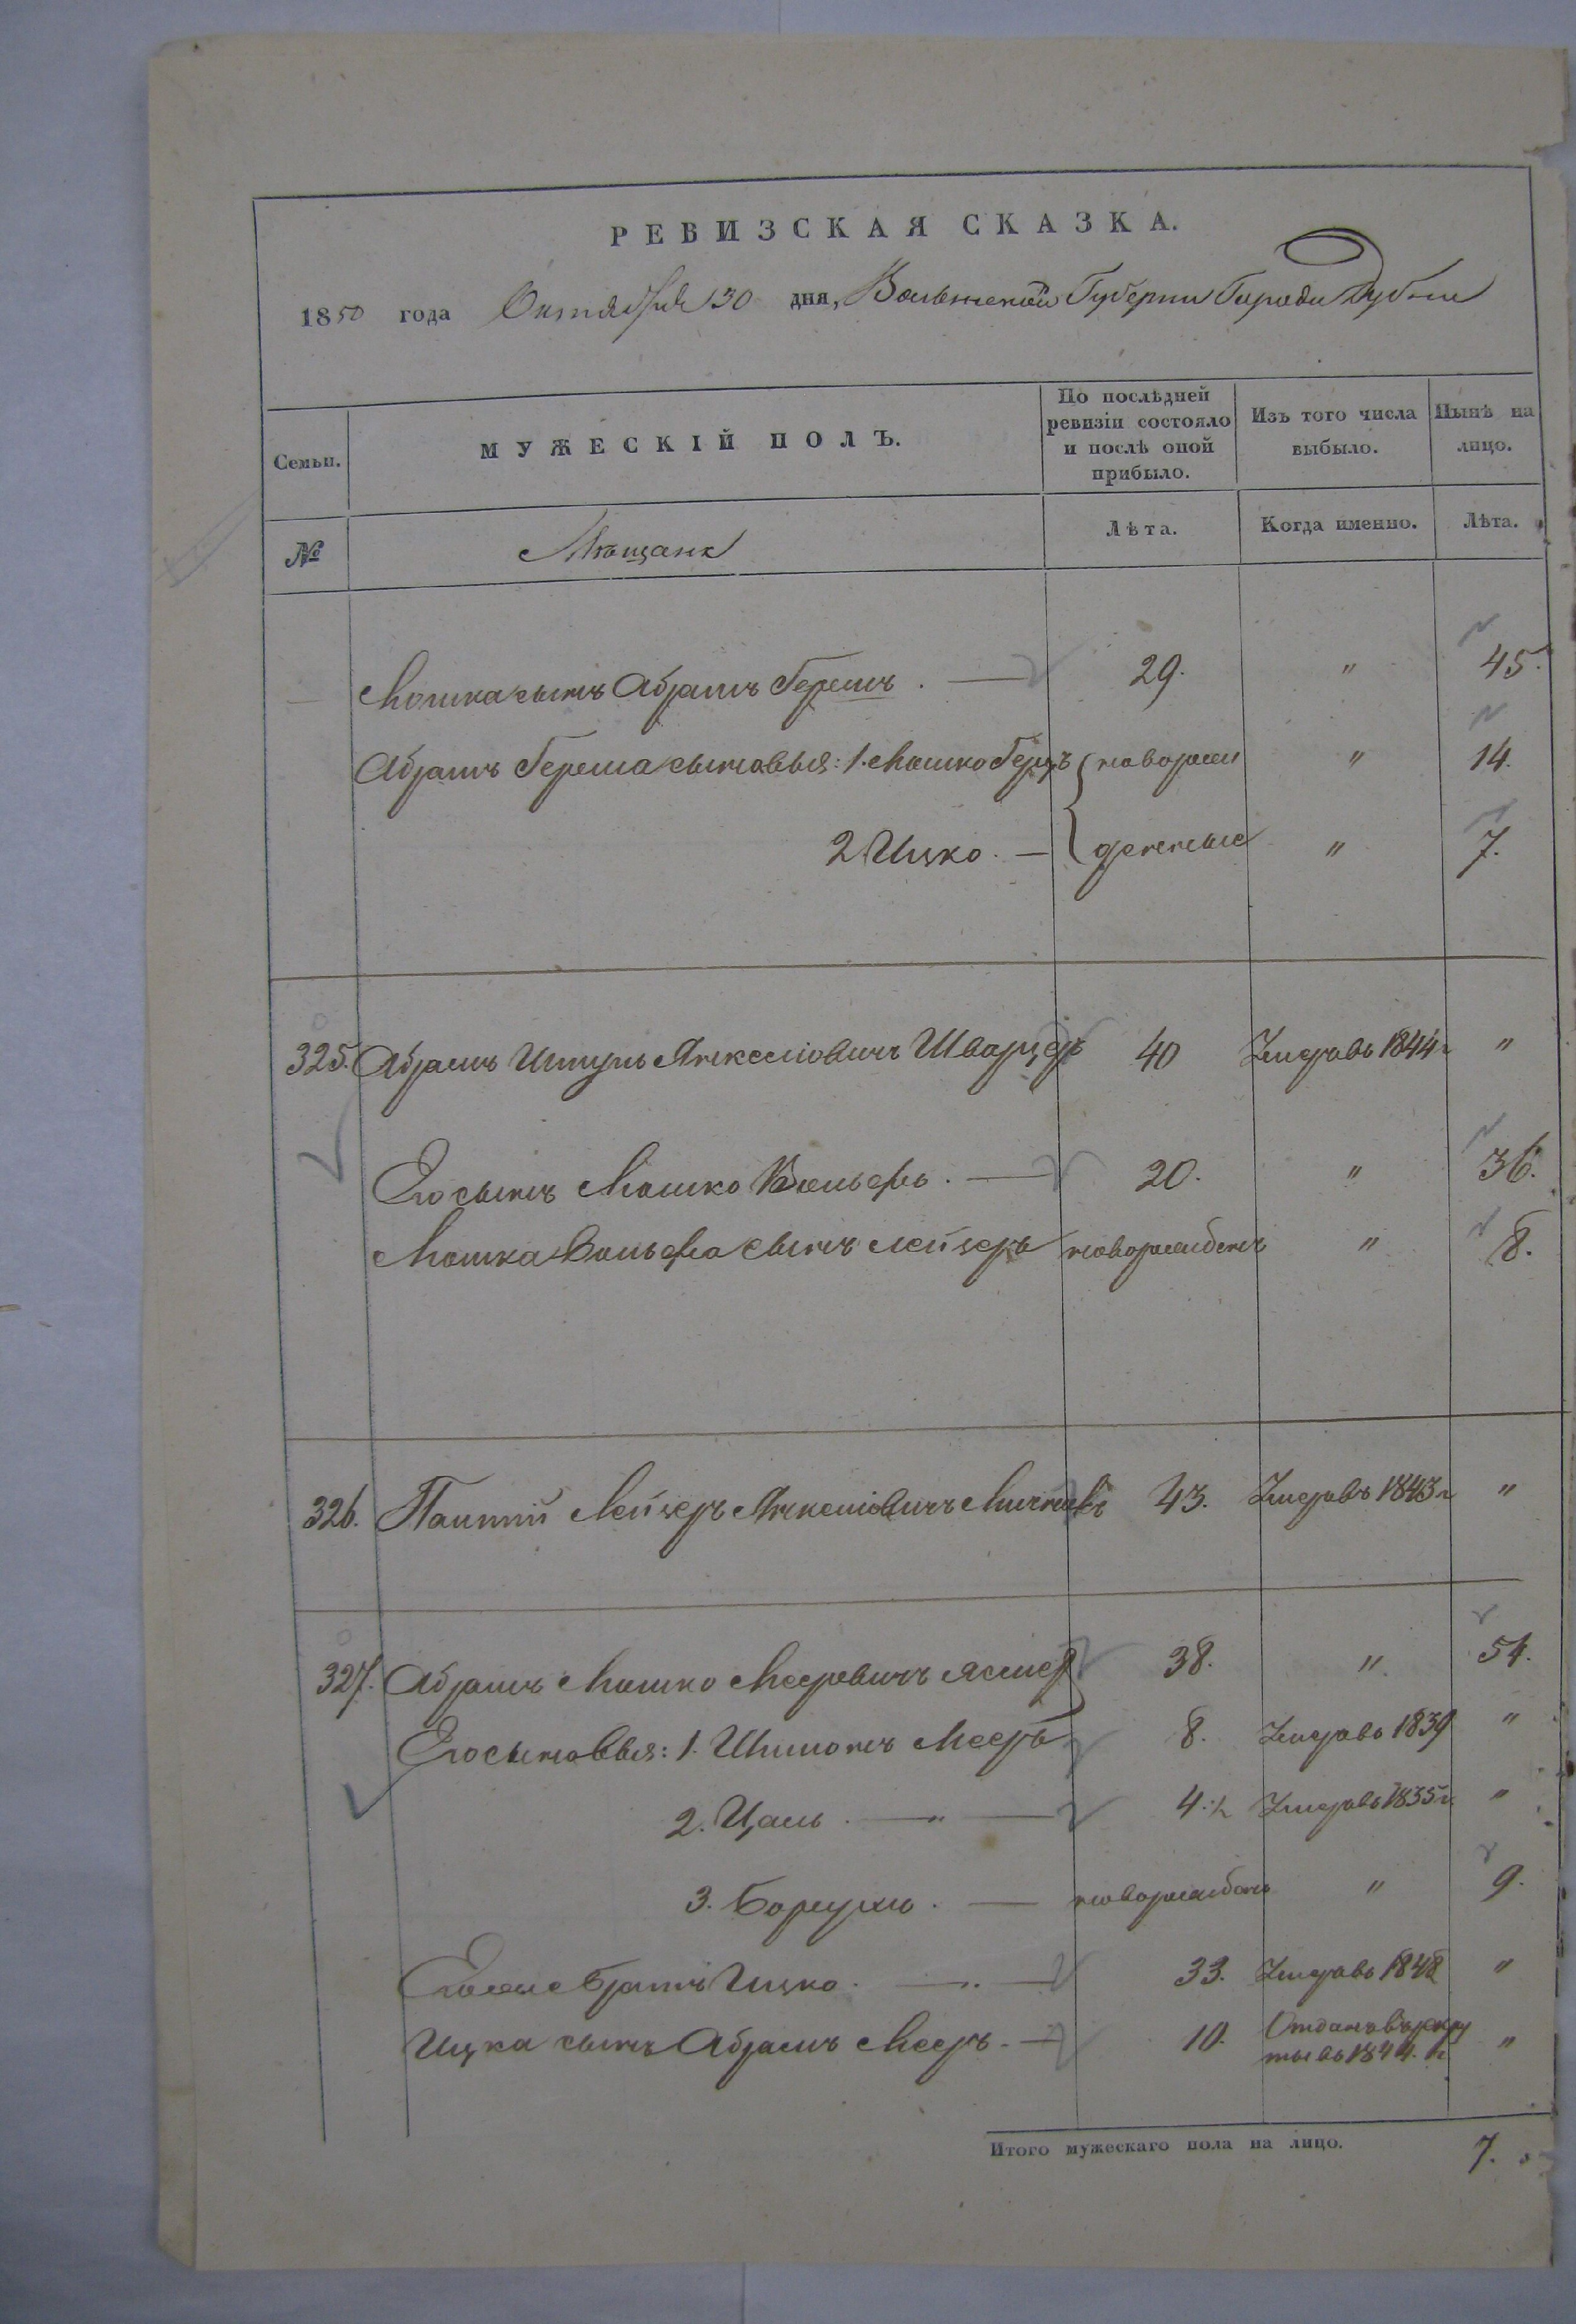 РЕВИЗСКАЯ СКАЗКА.
1850 года Октября 30 дня, Волынской Губернии Города Дубно
Семьи. МУЖЕСКІЙ ПОЛЪ. По послѣдней ревизіи состояло и послѣ оной прибыло. Изъ того числа выбыло. Нынѣ на лицо.
№ Мѣщане Лѣта. Когда именно. Лѣта.
Мошка сынъ Абрамъ Гершъ. — 29. " 45.
Абрамъ Герша сыновья: 1. Мошко Герцъ новорож " 14.
2 Ицко. — денные " 7.
325. Абрамъ Янкеліовичъ Шварцеръ 40 Умеръ въ 1844 г "
Его сынъ Мошко Вольфъ. — 20. " 36.
Мошка Вольфа сынъ Лейзеръ новорожденъ " 8.
326. Лейзеръ Янкеліовичъ 43. Умеръ въ 1843 г "
327. Абрамъ Мошко Мееровичъ 38. " 54.
Его сыновья: 1. Шимонъ Мееръ 8. Умеръ въ 1839 "
2. Цаль. — " — 4 ½ Умеръ въ 1835 г "
3. Борухъ. — новорожденъ " 9.
Его же братъ Ицко. — 33. Умеръ въ 1848 "
Ицка сынъ Абрамъ Мееръ. — 10. Отданъ въ рекру
ты въ 1844. г. "
Итого мужескаго пола на лицо. 7.